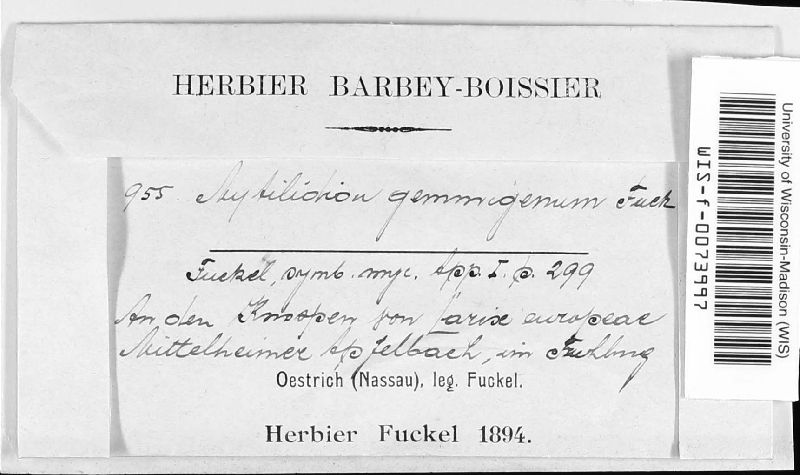 HERBIER BARBEY-BOISSIER
955 Mytilidion gemmigenum Fuck
Fuckel, symb. myc. App. I. p. 299
An den Knospen von Larix europeae
Mittelheimer Apfelbach, im Fruhling
Oestrich (Nassau), leg. Fuckel.
Herbier Fuckel 1894.
University of Wisconsin-Madison (WIS)
WIS-f-0073997